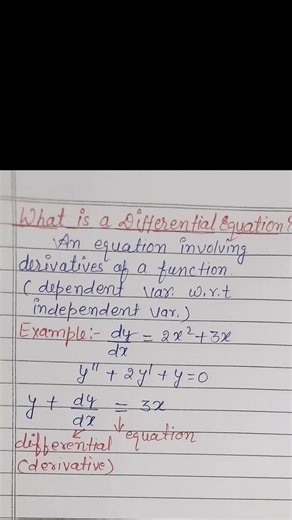 What is a Differential Equation?
An equation involving
derivatives of a function
(dependent var. w.r.t
independent var.)
Example:- dy/dx = 2x² + 3x
y'' + 2y' + y = 0
y + dy/dx = 3x
differential equation
(derivative)